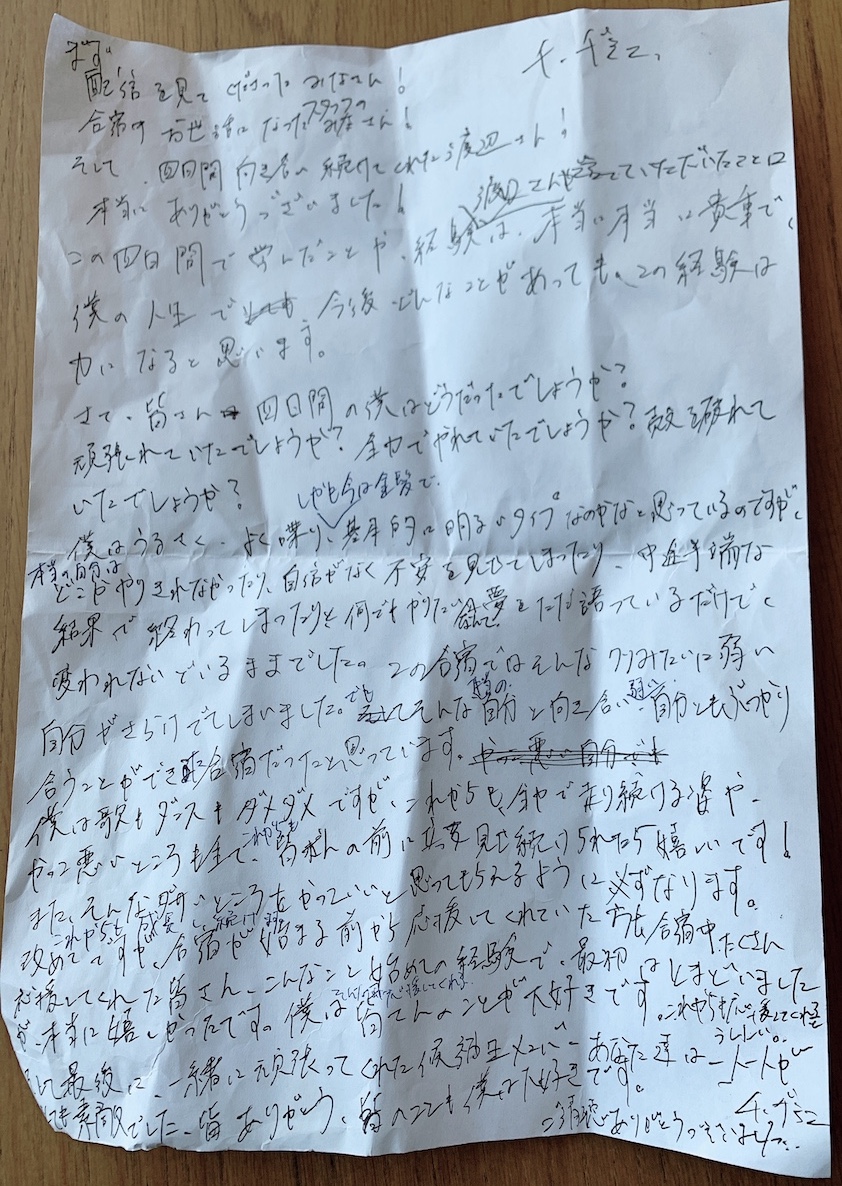 まず、
配信を見てくださったみなさん！
合宿でお世話になったスタッフのみなさん！
そして、四日間向き合い続けてくれた渡辺さん！
本当にありがとうございました！
渡辺さんや
ていただいたことは
この四日間で学んだことや、経験は、本当に本当に貴重で、
僕の人生で 今後どんなことがあっても、この経験は
力になると思います。
さて、皆さん 四日間の僕はどうだったでしょうか？
頑張れていたでしょうか？全力でやれていたでしょうか？殻を破れて
いたでしょうか？
しかも今は金髪で、
僕はうるさく、よく喋り、基本的に明るいタイプなのかなと思っているのですが、
本当の自分は
どこかやりきれなかったり、自信がなく不安を見せてしまったり、中途半端な
結果で終わってしまったりと何でもやりたい 夢をただ語っているだけで、
変われないでいるままでした。この合宿ではそんな みたいに弱い
自分がさらけでてしまいました。でもそんな本当の自分と向き合い、弱い自分ともぶつかり
合うことができた合宿だったと思っています。
僕は歌もダンスもダメダメですが、これからも、全力で走り続ける姿や、
かっこ悪いところも全て、これからも皆さんの前に 見せ続けられたら嬉しいです！
また、そんな ところをかっこいいと思ってもらえるように必ずなります。
これからも成長し続け
改めてですが、合宿が始まる前から応援してくれていた方も、合宿中たくさん
応援してくれた皆さん、こんなこと始めての経験で、最初はとまどいました
が、本当に嬉しかったです。僕は 応援してくれる皆さんのことが大好きです。これからも応援してくれると
うれしい。
そして最後に、一緒に頑張ってくれた候補生メンバー、あなた達は一人一人が
とても素敵でした。皆ありがとう、皆のことも僕は大好きです。
ご清聴ありがとうございました